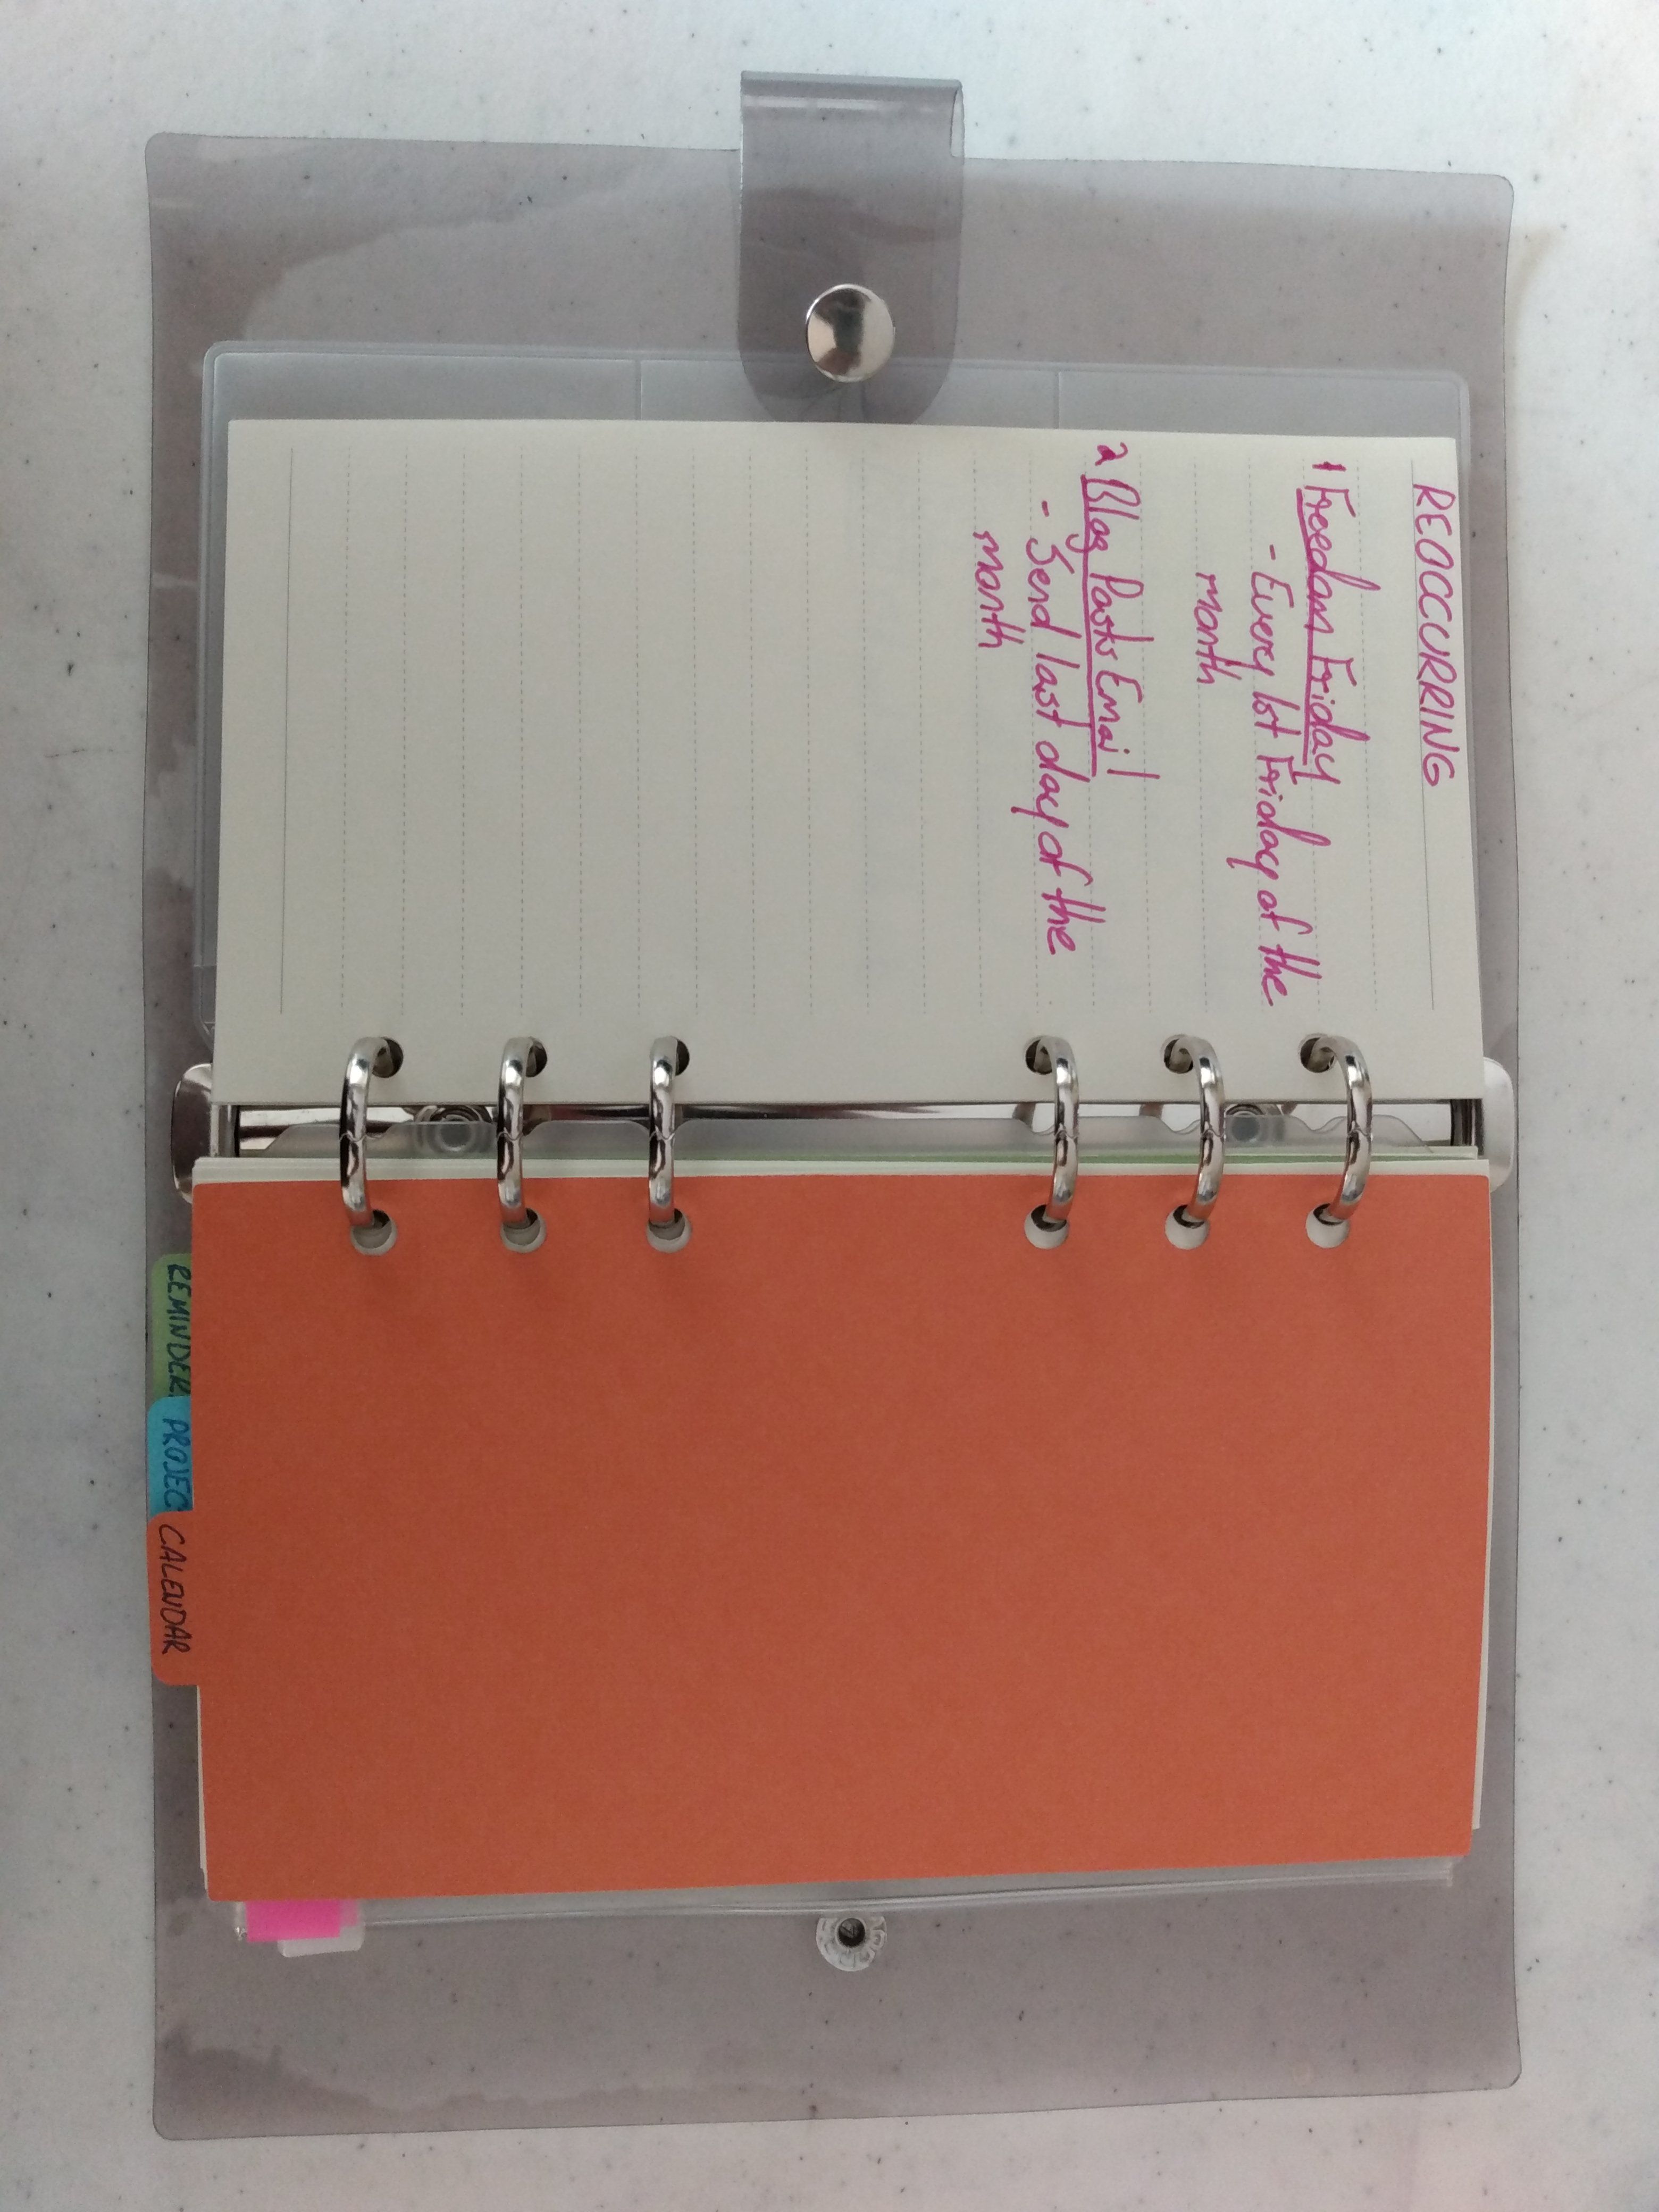 REOCCURRING
1 Freedom Friday
- Every 1st Friday of the
month
2 Blog Posts Email
- Send last day of the
month
REMINDER
PROJEC
CALENDAR